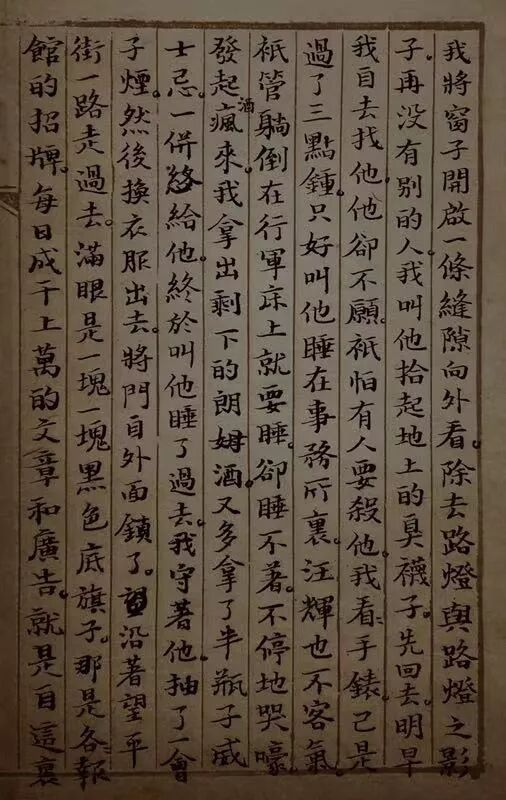 我將窗子開啟一條縫隙向外看。除去路燈與路燈之影
子。再没有別的人。我叫他拾起地上的臭襪子。先回去。明早
我自去找他。他卻不願。祇怕有人要殺他。我看手錶。已是
過了三點鍾。只好叫他睡在事務所裏。汪輝也不客氣。
祇管躺倒在行軍床上就要睡。卻睡不著。不停地哭嚎。
發起酒瘋來。我拿出剩下的朗姆酒。又多拿了半瓶子威
士忌。一併給他。終於叫他睡了過去。我守著他。抽了一會
子煙。然後換衣服出去。將門自外面鎖了。沿著望平
街一路走過去。滿眼是一塊一塊黑色底旗子。那是各報
館的招牌。每日成千上萬的文章和廣告。就是自這裏